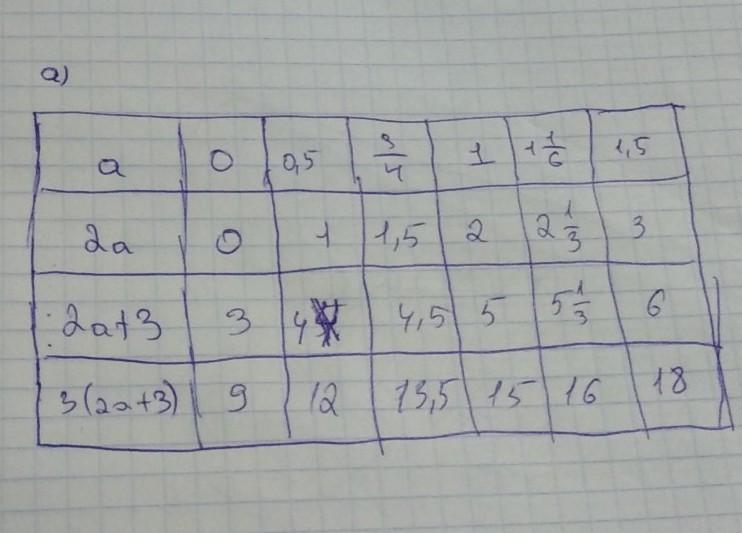 а)
a 0 0,5 3/4 1 1 1/6 1,5
2a 0 1 1,5 2 2 1/3 3
2a+3 3 4 4,5 5 5 1/3 6
3(2a+3) 9 12 13,5 15 16 18